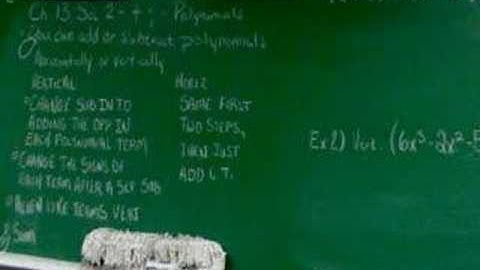 Ch 13 Sec 2 - + ; - Polynomials
You can add or subtract polynomials
Horizontally or vertically
VERTICAL
CHANGE SUB INTO
ADDING THE OPP IN
EACH POLYNOMIAL TERM
CHANGE THE SIGNS OF
EACH TERM AFTER A SUB
ALIGN LIKE TERMS VERT
HORIZ
SAME FIRST
TWO STEPS,
THEN JUST
ADD L.T.
Ex 2) Ver. (6x³-2x²-